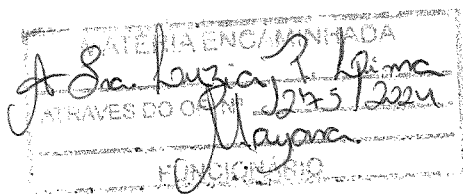 MATÉRIA ENCAMINHADA
A Sra. Luzia P. Lima
ATRAVÉS DO OF. Nº 1275/2024
Mayara
FUNCIONÁRIO